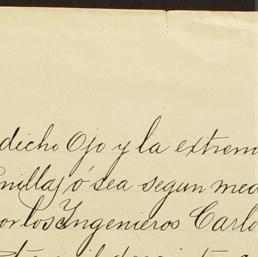 dicho Ojo y la extrem
nilla, ó sea segun med
or los Ingenieros Carlo